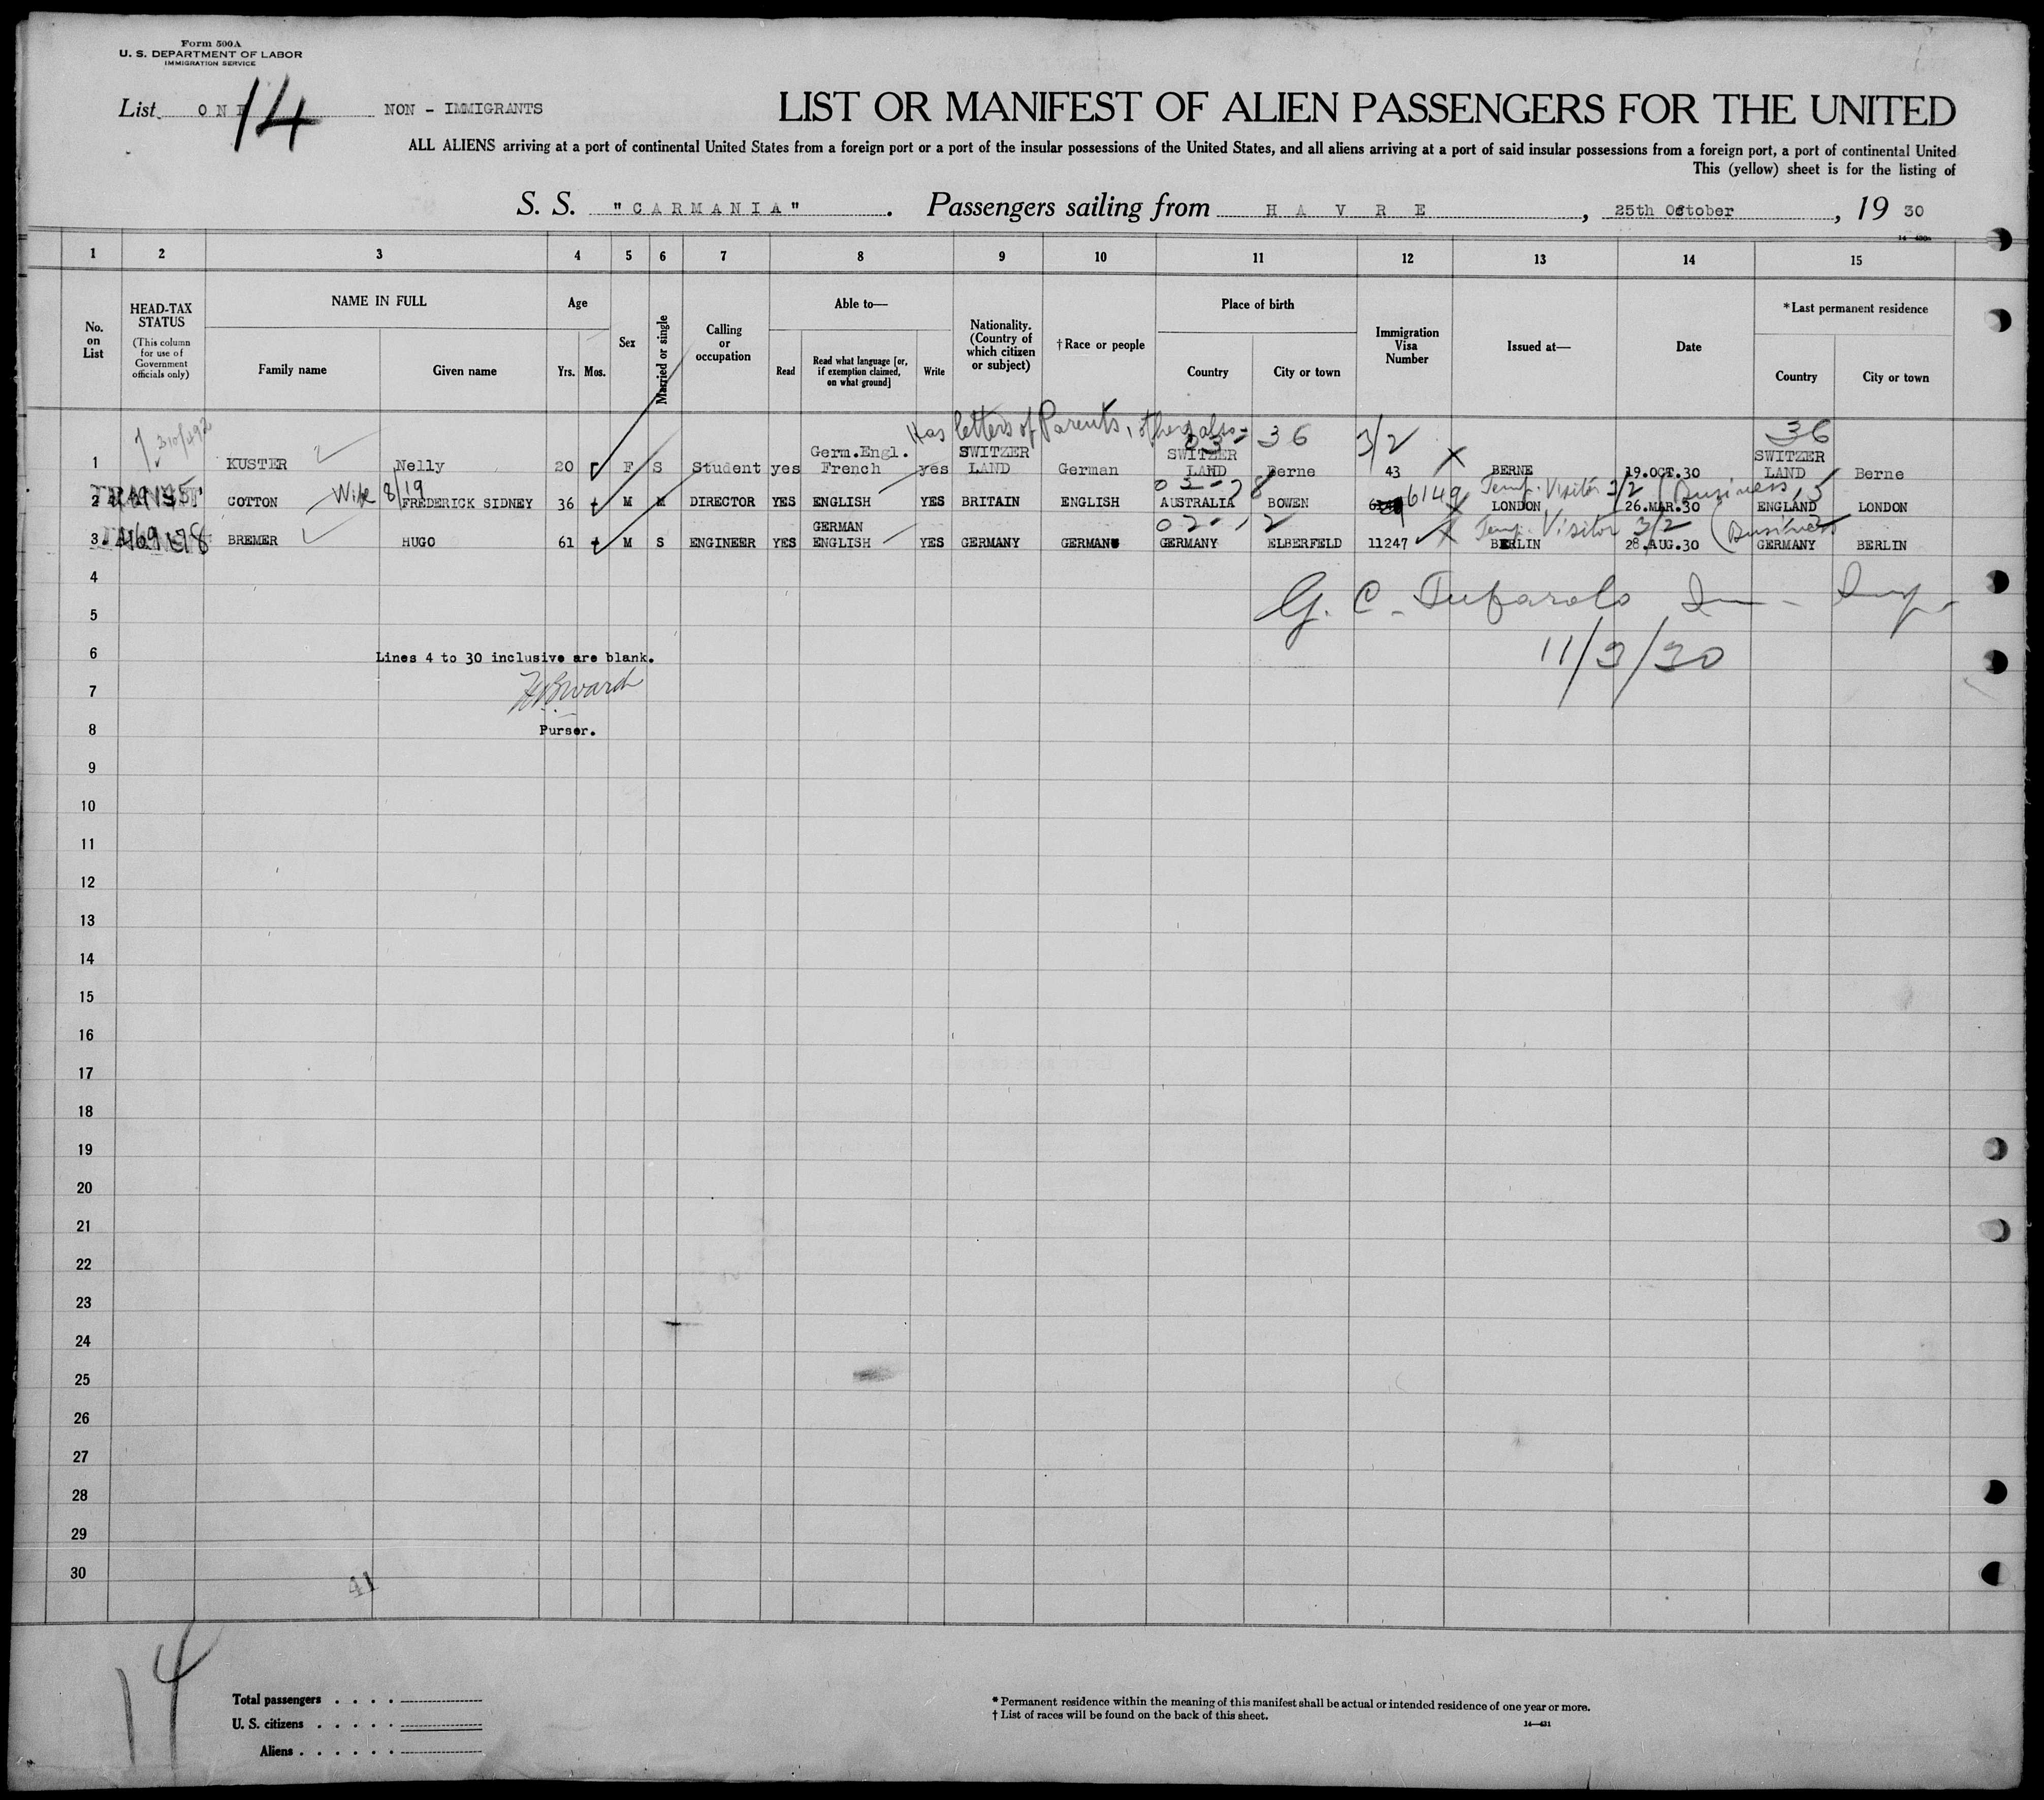 Form 500A
U. S. DEPARTMENT OF LABOR
IMMIGRATION SERVICE
List ONE 14 NON - IMMIGRANTS
LIST OR MANIFEST OF ALIEN PASSENGERS FOR THE UNITED
ALL ALIENS arriving at a port of continental United States from a foreign port or a port of the insular possessions of the United States, and all aliens arriving at a port of said insular possessions from a foreign port, a port of continental United
This (yellow) sheet is for the listing of
S. S. "CARMANIA". Passengers sailing from HAVRE, 25th October, 1930
1 2 3 4 5 6 7 8 9 10 11 12 13 14 15
No. on List
HEAD-TAX STATUS
(This column for use of Government officials only)
NAME IN FULL
Family name Given name
Age
Yrs. Mos.
Sex
Married or single
Calling or occupation
Able to—
Read
Read what language [or, if exemption claimed, on what ground]
Write
Nationality. (Country of which citizen or subject)
†Race or people
Place of birth
Country City or town
Immigration Visa Number
Issued at—
Date
*Last permanent residence
Country City or town
Has letters of Parents, others also
03- 36 3/2 36
1 KUSTER Nelly 20 F S Student yes Germ.Engl. French yes SWITZER LAND German SWITZER LAND Berne 43 BERNE 19.OCT.30 SWITZER LAND Berne
Wife 8/19 6149 Temp. Visitor 3/2 (Business,
2 COTTON FREDERICK SIDNEY 36 M M DIRECTOR YES ENGLISH YES BRITAIN ENGLISH AUSTRALIA BOWEN LONDON 26.MAR.30 ENGLAND LONDON
Temp. Visitor 3/2 (Business
3 BREMER HUGO 61 M S ENGINEER YES GERMAN ENGLISH YES GERMANY GERMAN GERMANY ELBERFELD 11247 BERLIN 28.AUG.30 GERMANY BERLIN
4
5
G. C. Tufarolo Im- Insp.
6
Lines 4 to 30 inclusive are blank.
11/3/30
7
8
Purser.
9
10
11
12
13
14
15
16
17
18
19
20
21
22
23
24
25
26
27
28
29
30
41
14
Total passengers . . . .
U. S. citizens . . . . .
Aliens . . . . . .
* Permanent residence within the meaning of this manifest shall be actual or intended residence of one year or more.
† List of races will be found on the back of this sheet.
14—431